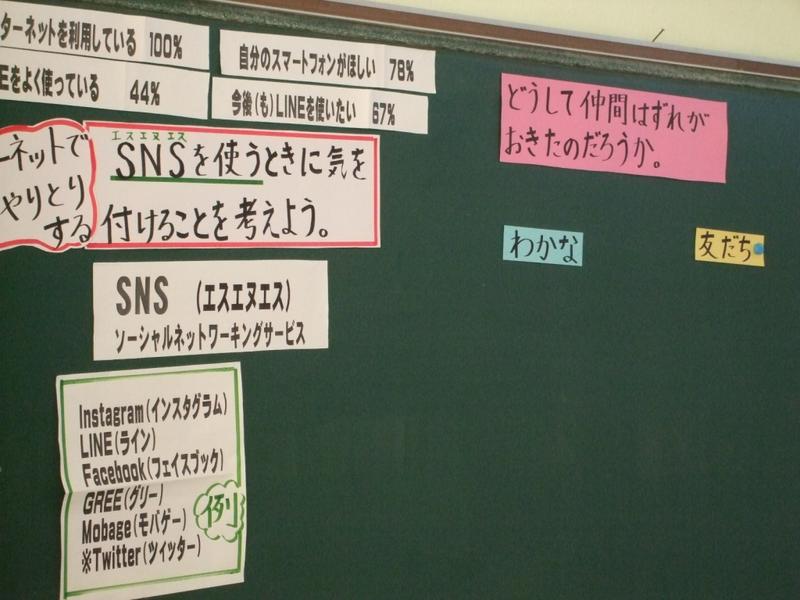 ターネットを利用している 100%
Eをよく使っている 44%
自分のスマートフォンがほしい 78%
今後(も)LINEを使いたい 67%
ーネットで
やりとり
する
エスエヌエス
SNSを使うときに気を
付けることを考えよう。
SNS (エスエヌエス)
ソーシャルネットワーキングサービス
Instagram(インスタグラム)
LINE(ライン)
Facebook(フェイスブック)
GREE(グリー)
Mobage(モバゲー)
※Twitter(ツィッター)
例
どうして仲間はずれが
おきたのだろうか。
わかな
友だち